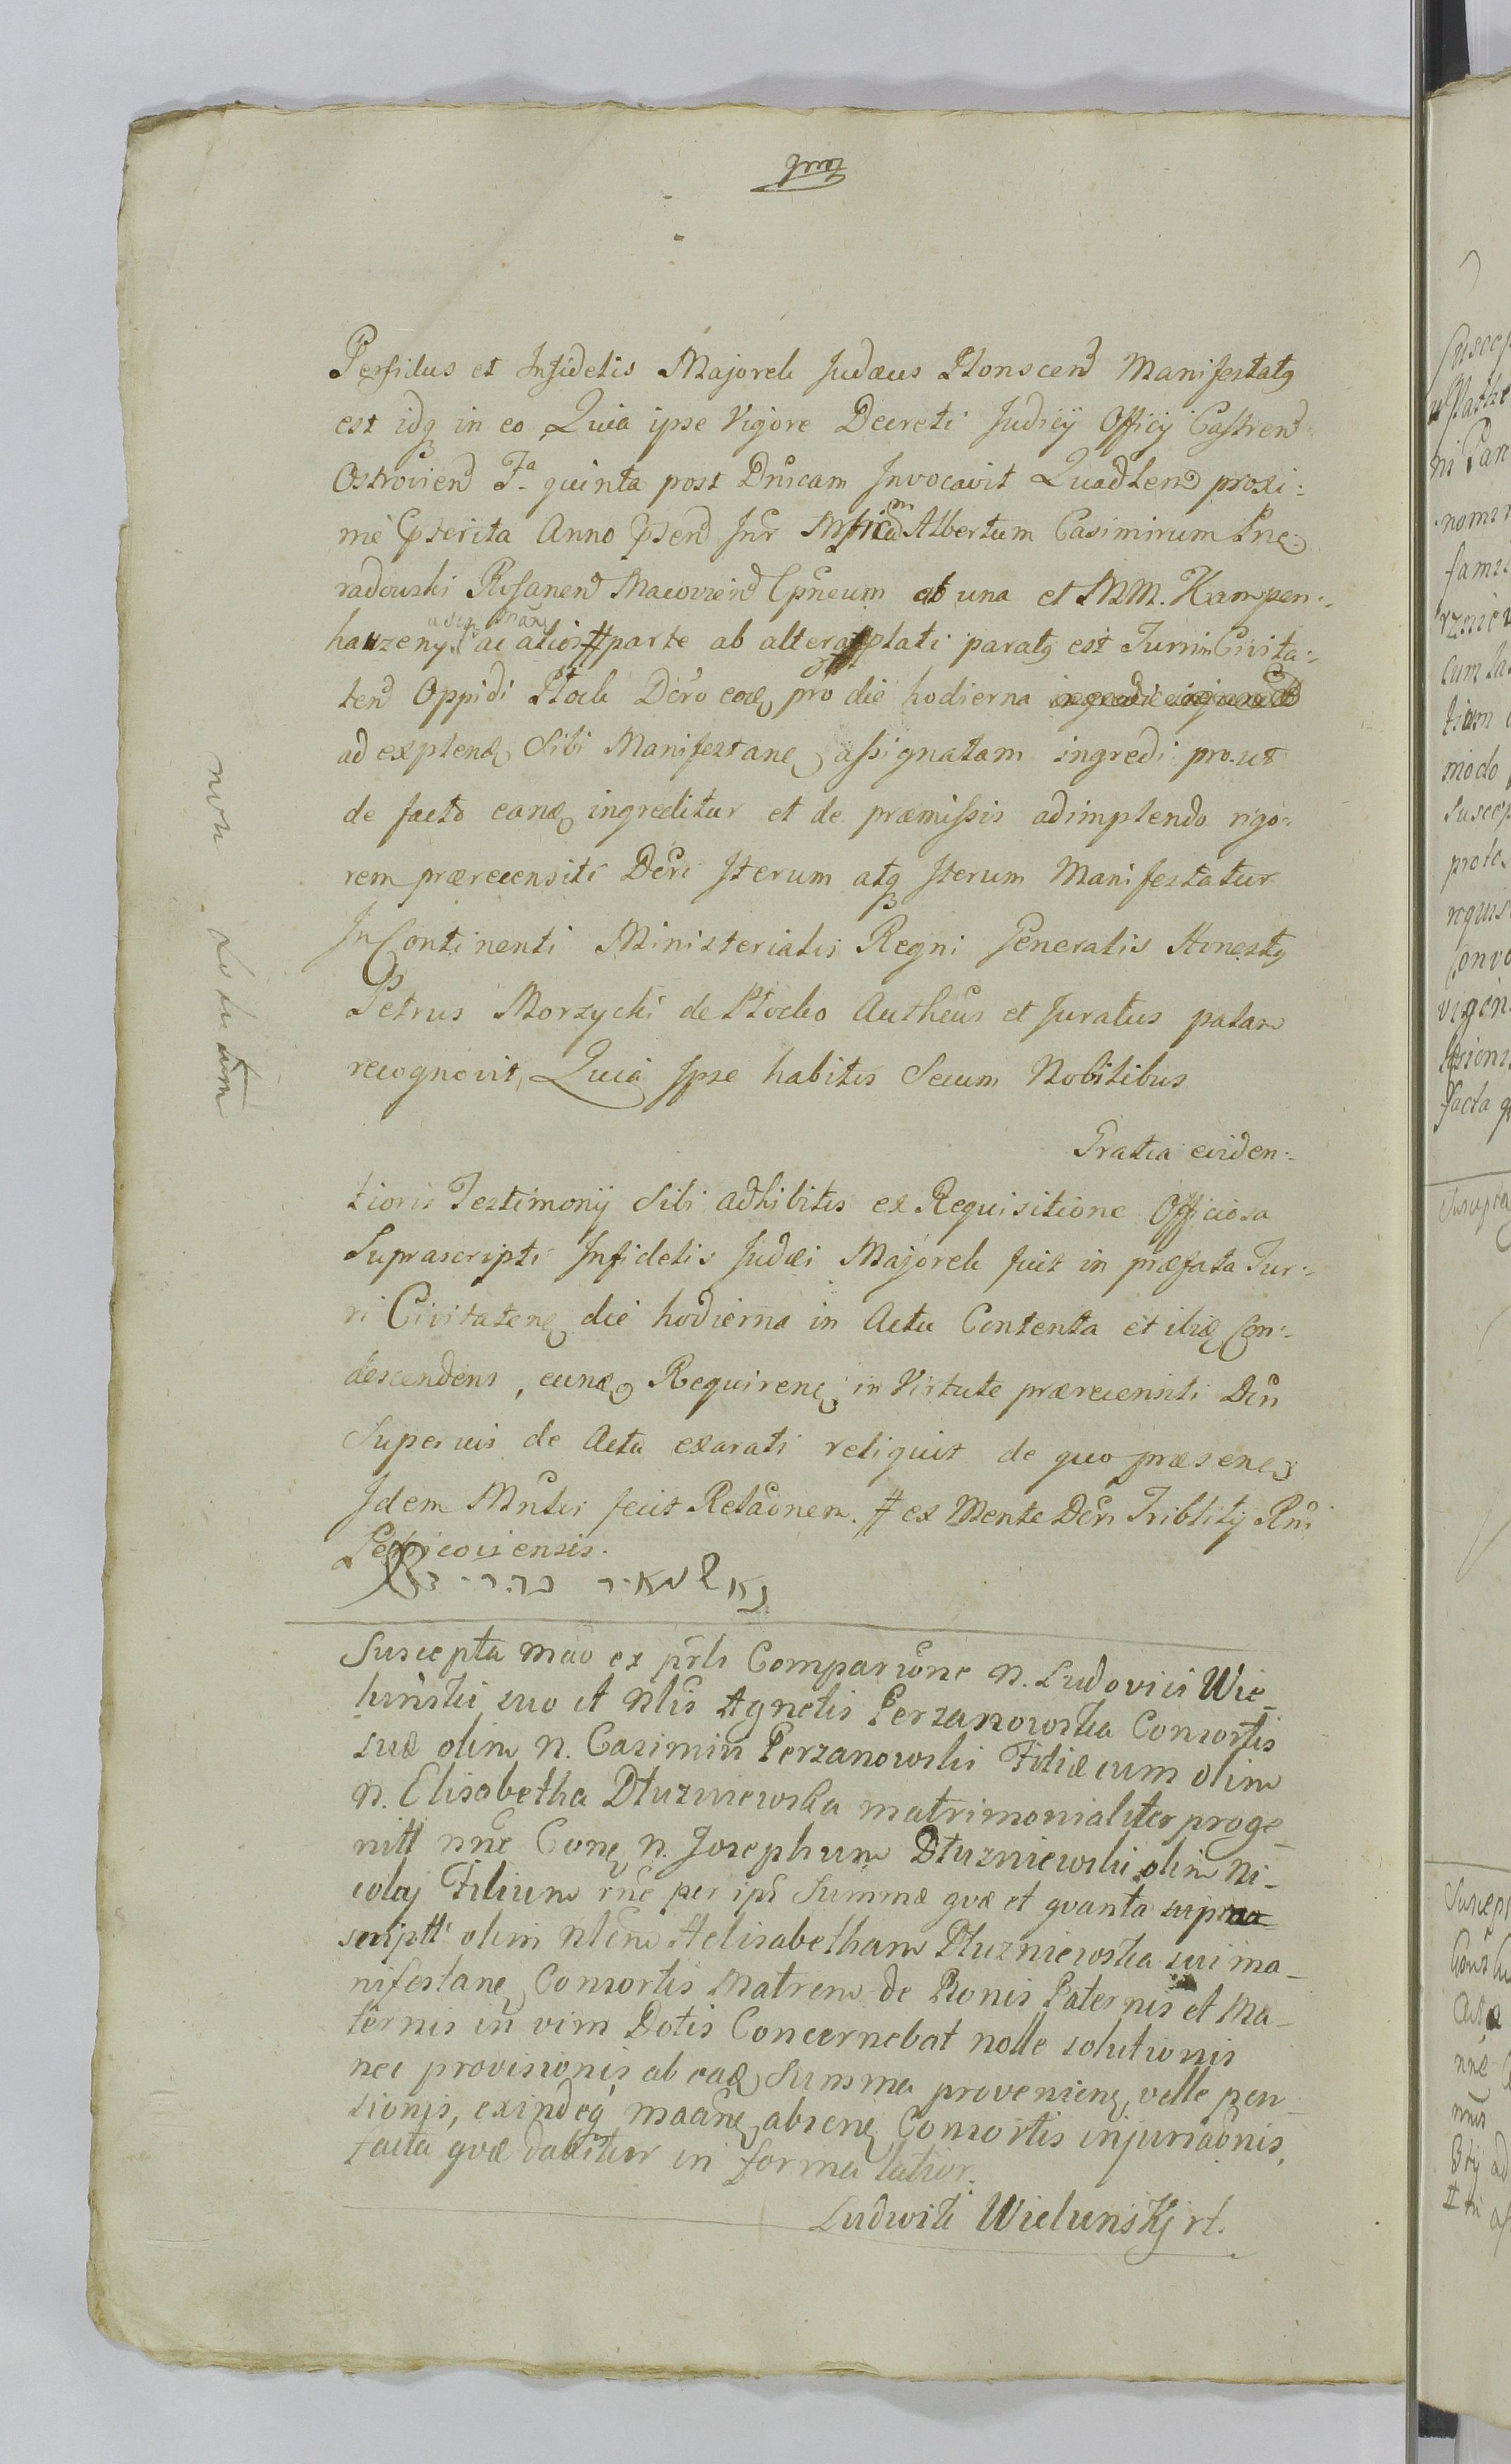 Perfidus et Infidelis Majorek Judæus Płonscen Manifestatq
est idq in eo Quia ipse Vigore Decreti Judicij Officij Castren
Ostrovien Fa quinta post Dnicam Invocavit Quadlen proxi:
me pterita Anno psen Inr Mficum Albertum Casimirum Pnie
radowski Rosanen Macovien Cpneum ab una et MM. Kampen:
hauzeny ac alios # parte ab altera plati paratq est Turrim Civita:
ten Oppidi Płock Dcro eod pro die hodierna
ad explend Sibi Manifestane assignatam ingredi prout
de facto eand ingreditur et de præmissis adimplendo rigo:
rem prærecensiti Dcri Iterum atq Iterum Manifestatur
In Continenti Ministerialis Regni Generalis Honestq
Petrus Morzycki de Płocko Autheus et Juratus palam
recognovit, Quia Ipse habitis Secum Nobilibus
Gratia eviden:
tioris Testimonij Sibi adhibitis ex Requisitione Officiosa
Suprascripti Infidelis Judæi Majorek fuit in præfata Tur:
ri Civitatene die hodierna in Actu Contenta et ibid Con:
descendens, eund Requirene in Virtute prærecensiti Dcri
Superius de Actu exarati reliquit de quo præsene
Idem Mnlis fecit Relaonem. # ex Mente Dcri Triblitij Rni
Petricoviensis.
Suscepta mao ex prli Comparione N. Ludovici Wie_
lunski suo et Nlis Agnetis Perzanowska Consortis
suæ olim N. Casimiri Perzanowski Filiæ cum olim
N. Elisabetha Dłuzniewska matrimonialiter proge_
nitt nne Cone N. Josephum Dłuzniewski olim Ni_
colaj Filium rne per ips Summæ qvæ et qvanta supra
scriptt olim Nlem Helisabetham Dłuzniewska sui ma_
nifestane Consortis Matrem de Bonis Paternis et Ma_
ternis in vim Dotis Concernebat nolle solutionis
nec provisionis ab ead Summa proveniene velle pen_
sionis, exindeq maane absene Consortis injuriaonis,
facta qvæ dabitur in forma latior.
Ludwik Wielunskj rt.
non solutum